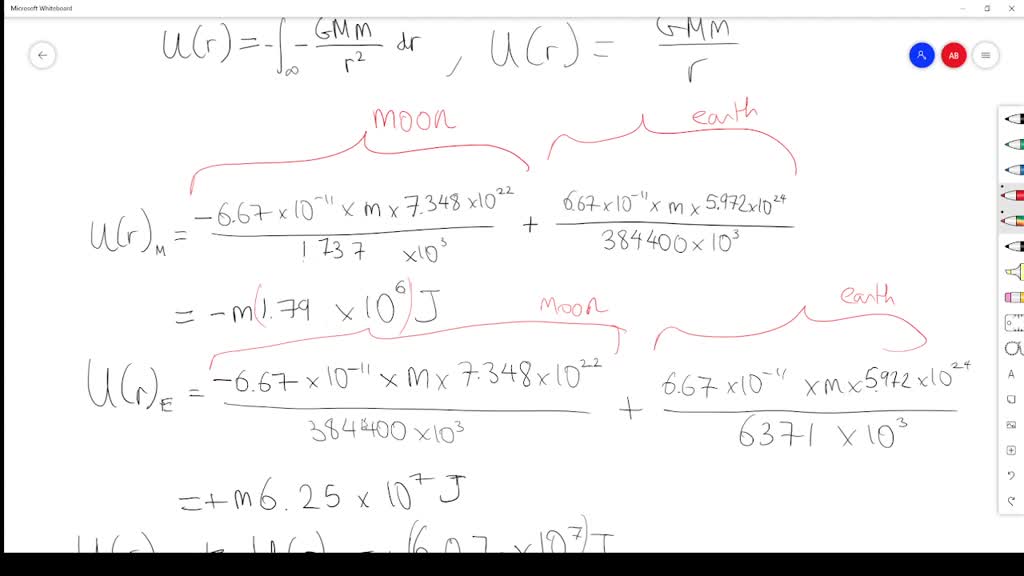 Microsoft Whiteboard
U(r) = -∫∞ - GMm/r² dr , U(r) = GMm/r
AB
moon earth
U(r)M = -6.67 × 10⁻¹¹ × m × 7.348 × 10²² / 1737 × 10³ + 6.67 × 10⁻¹¹ × m × 5.972 × 10²⁴ / 384400 × 10³
= -m(1.79 × 10⁶) J
moon earth
U(r)E = -6.67 × 10⁻¹¹ × m × 7.348 × 10²² / 384400 × 10³ + 6.67 × 10⁻¹¹ × m × 5.972 × 10²⁴ / 6371 × 10³
= +m6.25 × 10⁷ J